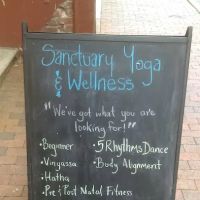 Sanctuary Yoga
& Wellness
"We've got what you are
looking for!"
• Beginner
• 5 Rhythms Dance
• Vinyassa
• Body Alignment
• Hatha
• Pre & Post Natal Fitness